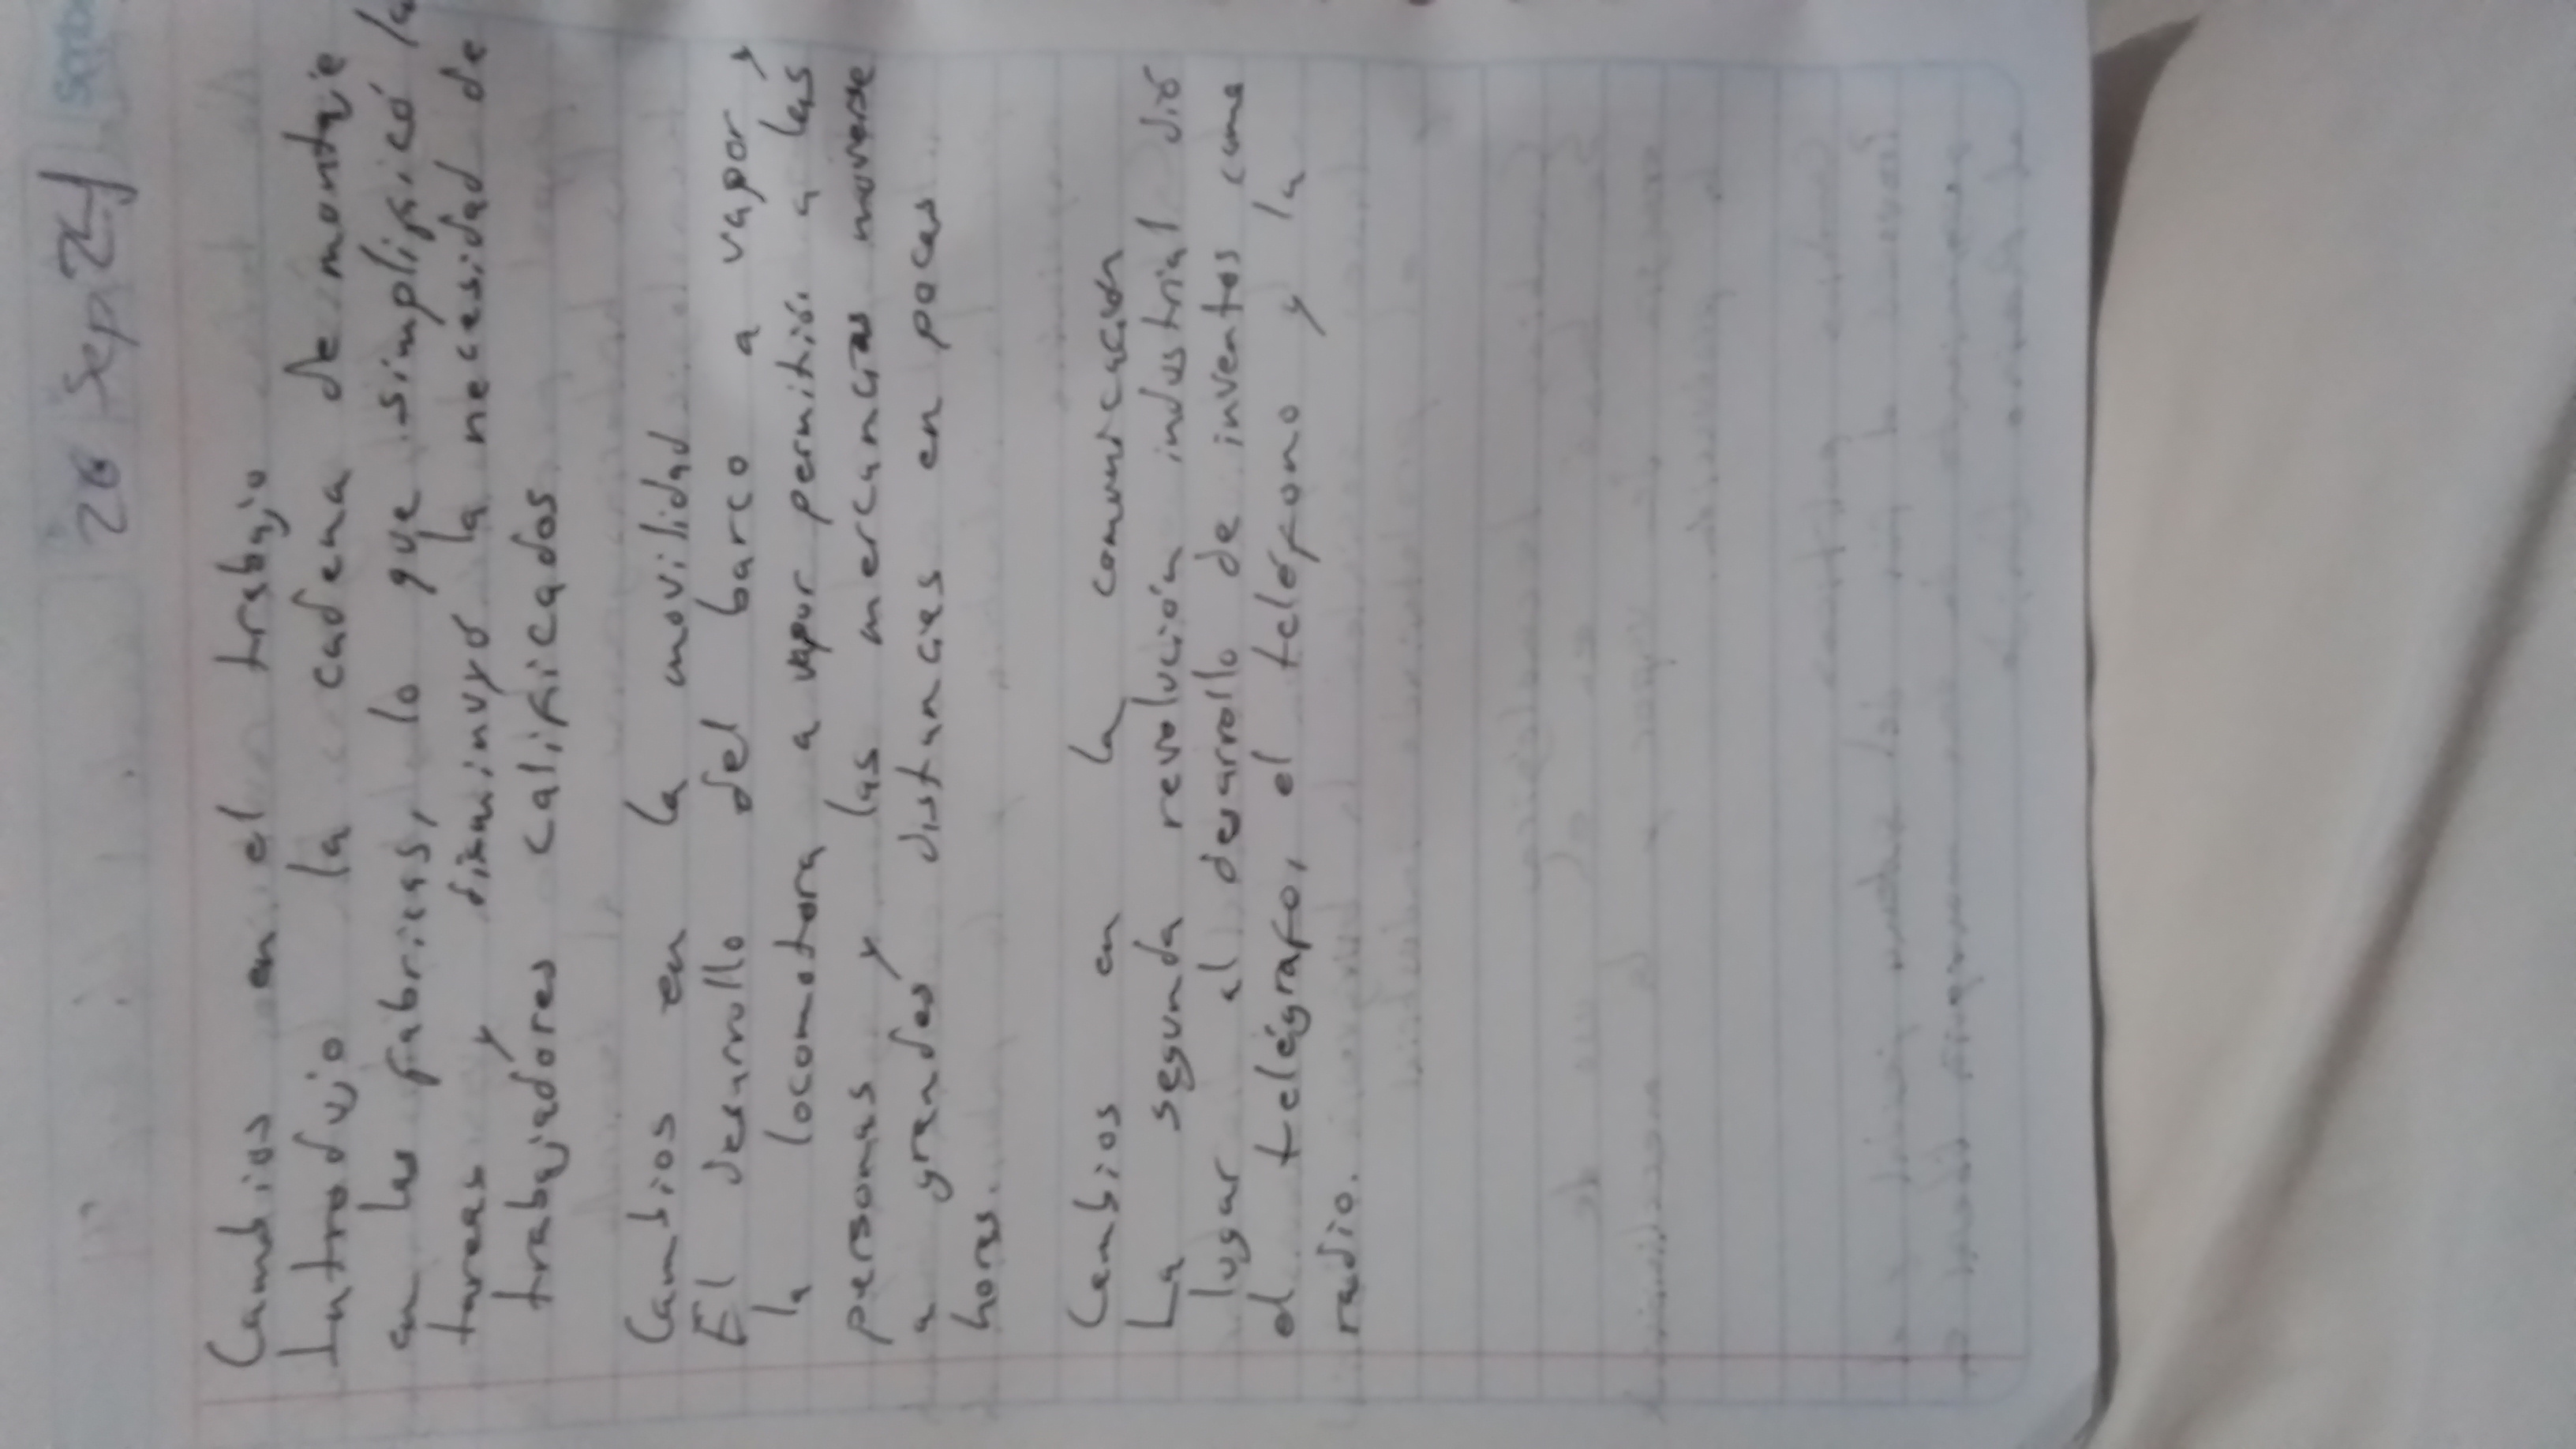 26 Sep 24
Cambios en el trabajo
Introdujo la cadena de montaje
en las fabricas, lo que simplificó la
tareas y disminuyó la necesidad de
trabajadores calificados
Cambios en la movilidad
El desarrollo del barco a vapor y
la locomotora a vapor permitió a las
personas y las mercancías moverse
a grandes distancias en pocas
horas.
Cambios en la comunicación
La segunda revolución industrial dió
lugar al desarrollo de inventos como
el telégrafo, el teléfono y la
radio.